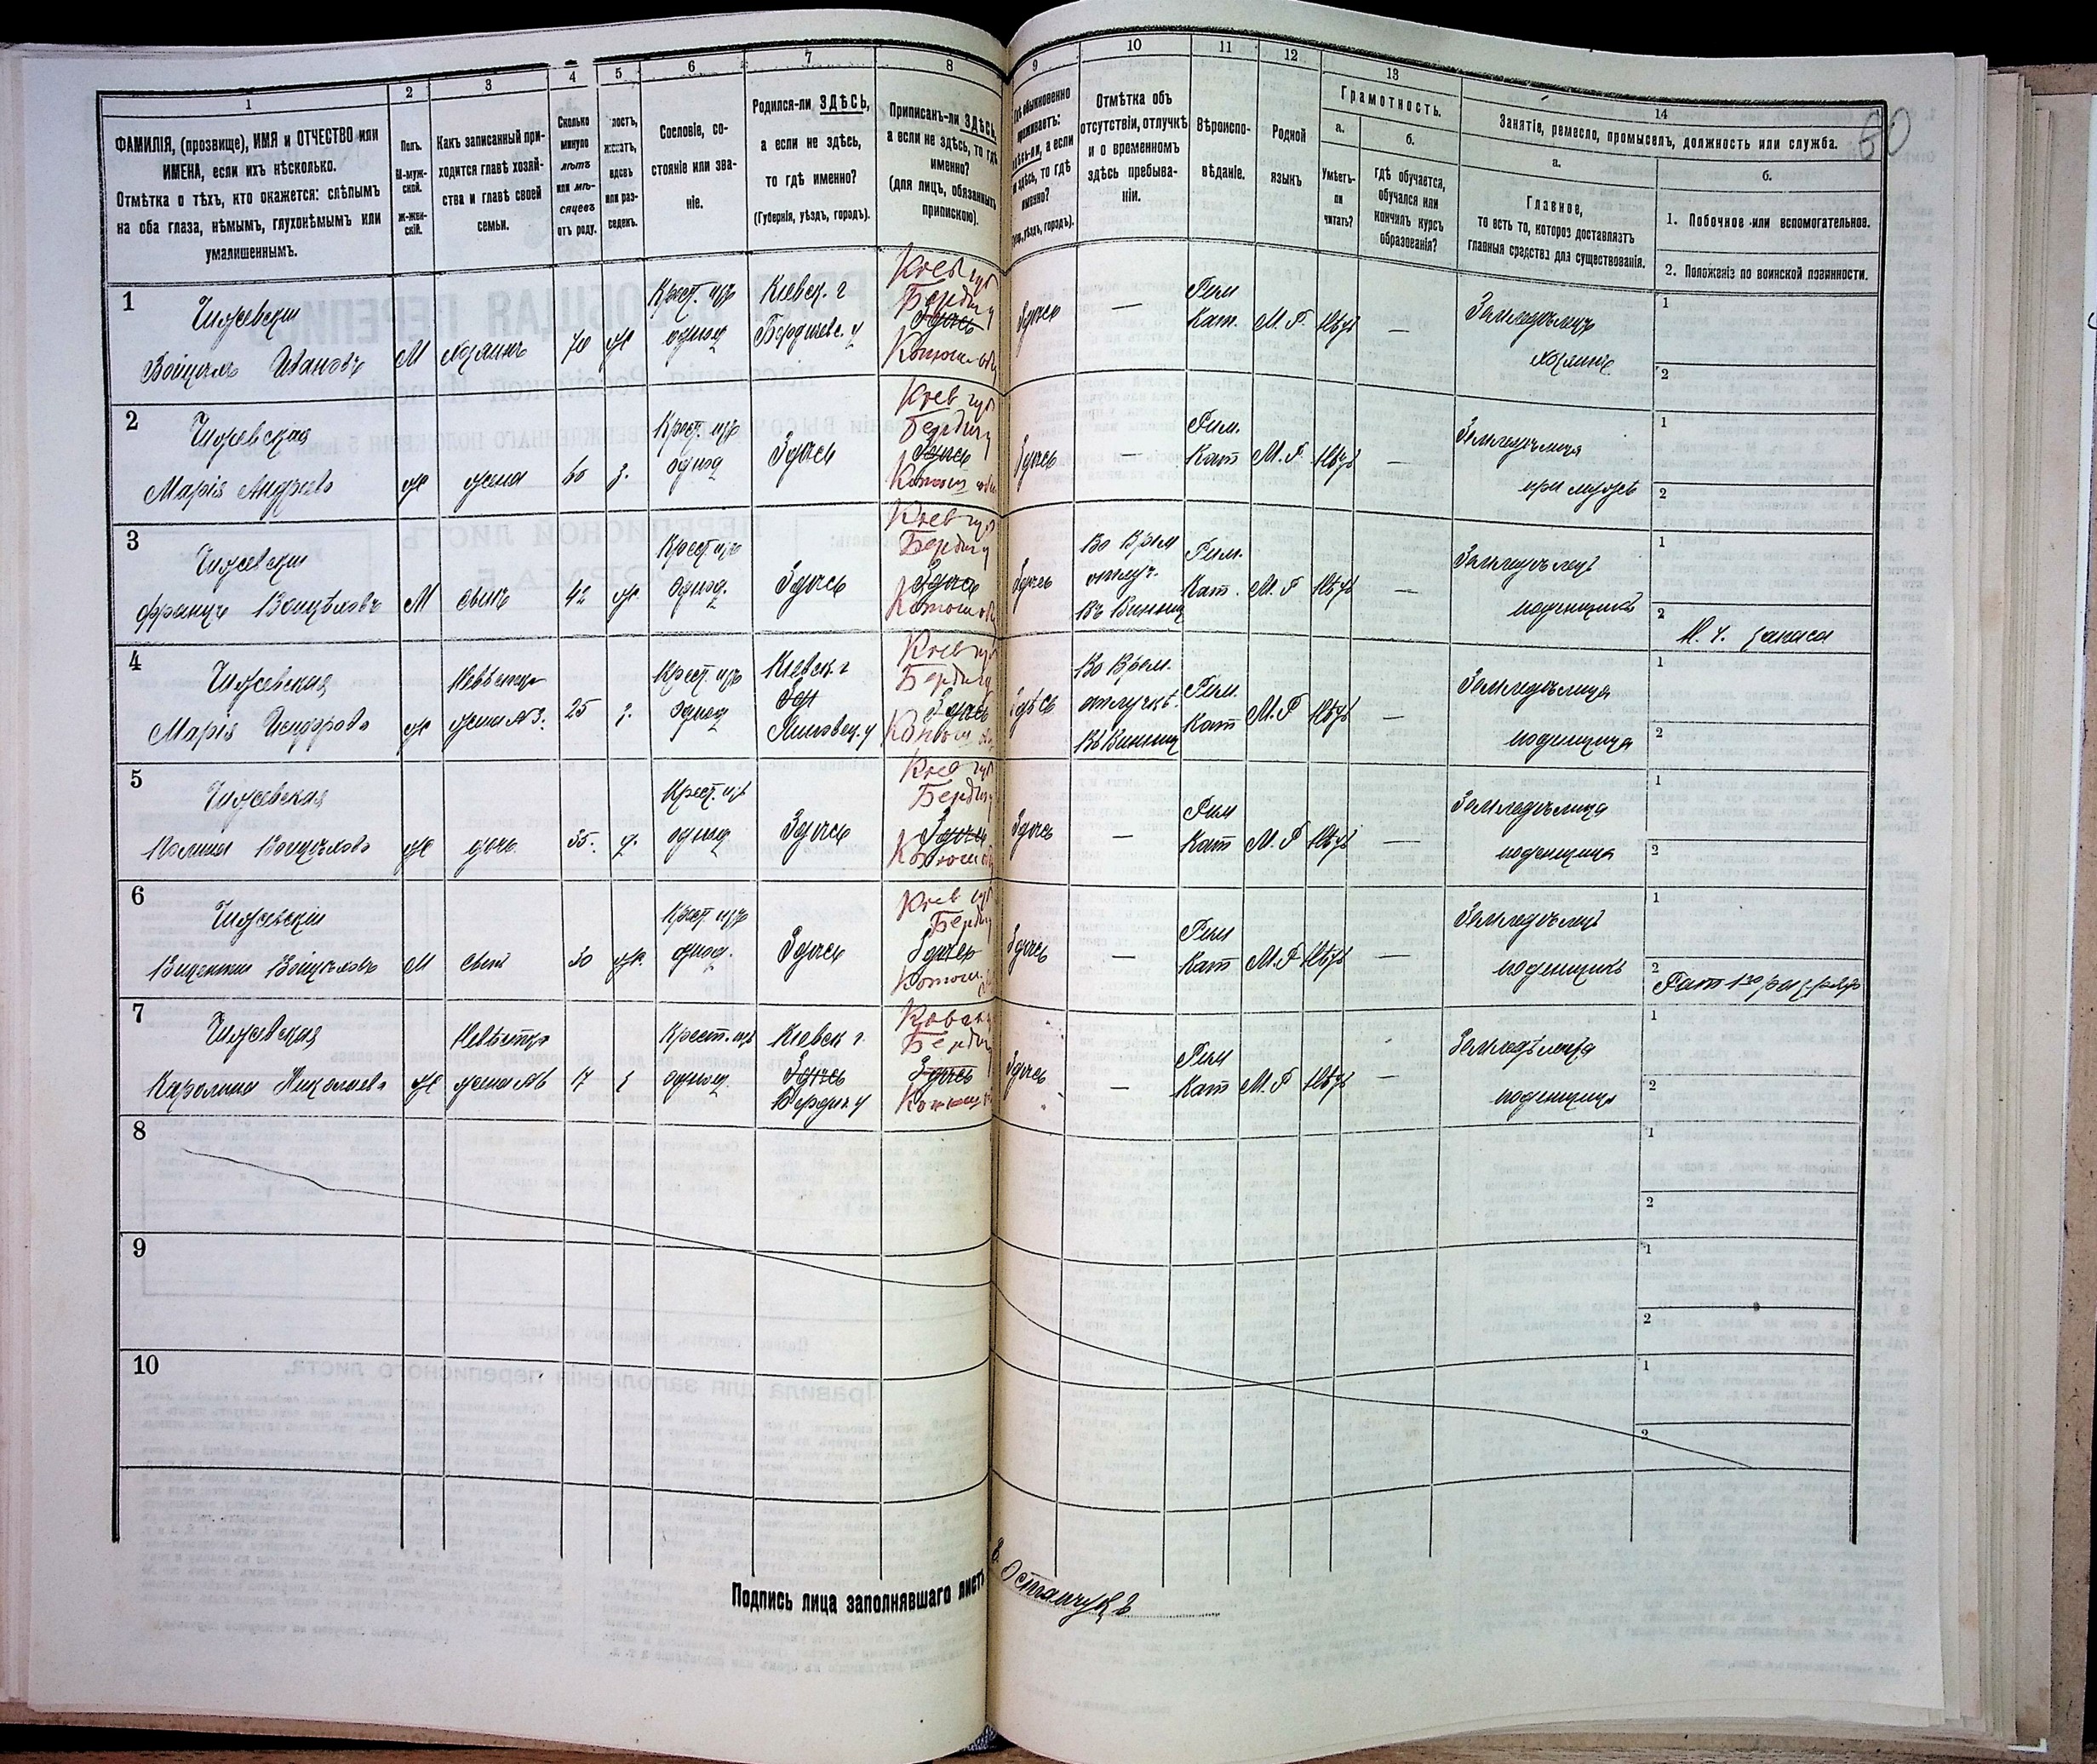 1 2 3 4 5 6 7 8 9 10 11 12 13 14
60
ФАМИЛІЯ, (прозвище), ИМЯ и ОТЧЕСТВО или
ИМЕНА, если ихъ нѣсколько.
Отмѣтка о тѣхъ, кто окажется: слѣпымъ
на оба глаза, нѣмымъ, глухонѣмымъ или
умалишеннымъ.
Полъ.
М-муж-
ской.
Ж-жен-
скій.
Какъ записанный при-
ходится главѣ хозяй-
ства и главѣ своей
семьи.
Сколько
минуло
лѣтъ
или мѣ-
сяцевъ
отъ роду.
лостъ,
женатъ,
вдовъ
или раз-
веденъ.
Сословіе, со-
стояніе или зва-
ніе.
Родился-ли ЗДѢСЬ,
а если не здѣсь,
то гдѣ именно?
(Губернія, уѣздъ, городъ).
Приписанъ-ли ЗДѢСЬ,
а если не здѣсь, то гдѣ
именно?
(для лицъ, обязанныхъ
припискою).
обыкновенно
проживаетъ:
здѣсь-ли, а если
не здѣсь, то гдѣ
именно?
уѣздъ, городъ).
Отмѣтка объ
отсутствіи, отлучкѣ
и о временномъ
здѣсь пребыва-
ніи.
Вѣроиспо-
вѣданіе.
Родной
языкъ
Грамотность.
а.
Умѣетъ-
ли
читать?
б.
гдѣ обучается,
обучался или
кончилъ курсъ
образованія?
Занятіе, ремесло, промыселъ, должность или служба.
а.
Главное,
то есть то, которое доставляетъ
главныя средства для существованія.
б.
1. Побочное или вспомогательное.
2. Положеніе по воинской повинности.
1
Чижевскій
Войцѣхъ Ивановъ
М
хозяинъ
70
ж
Крест. изъ
однод
Кіевск. г
Бердичевс. у
Кіев губ
Бердич у
Здѣсь
Здѣсь
—
Рим
Кат.
М. Р.
Нѣтъ
—
Земледѣлецъ
хозяинъ
1
2
2
Чижевская
Марія Андреев
ж
жена
60
з.
Крест. изъ
однод
Здѣсь
Кіев губ
Бердич у
Здѣсь
Здѣсь
—
Рим.
Кат
М. Р.
Нѣтъ
—
Земледѣлица
при мужѣ
1
2
3
Чижевскій
Францъ Войцѣховъ
М
сынъ
42
ж
Крест изъ
Однод.
Здѣсь
Кіев губ
Бердич у
Здѣсь
Здѣсь
Во Врем
отлуч.
Въ Винниц
Рим.
Кат.
М. Р
Нѣтъ
—
Земледѣлецъ
поденщикъ
1
2
Н. Ч. запаса
4
Чижевская
Марія
ж
Невѣстка
жена №3.
25
з.
Крест. изъ
однод
Кіевск г
Липовец. у
Кіев губ
Бердич у
Здѣсь
Здѣсь
Во Врем.
отлучкѣ.
Въ Винниц
Рим.
Кат
М. Р
Нѣтъ
—
Земледѣлица
поденщица
1
2
5
Чижевская
Войцѣхова
ж
дочь
35.
д.
Крест. изъ
однод
Здѣсь
Кіев губ
Бердич у
Здѣсь
Здѣсь
—
Рим
Кат
М. Р
Нѣтъ
—
Земледѣлица
поденщица
1
2
6
Чижевскій
Викентій Войцѣховъ
М
сынъ
30
ж
Крест изъ
однод.
Здѣсь
Кіев губ
Бердич
Здѣсь
Здѣсь
—
Рим
Кат
М. Р
Нѣтъ
—
Земледѣлецъ
поденщикъ
1
2
7
Чижевская
Каролина Николаева
ж
Невѣстка
жена №6
17
з
Крест. изъ
однод.
Кіевск г.
Здѣсь
Бердич у
Бердич
Здѣсь
Здѣсь
—
Рим
Кат
М. Р
Нѣтъ
—
Земледѣлица
поденщица
1
2
8
1
2
9
1
2
10
1
2
Подпись лица заполнявшаго листъ